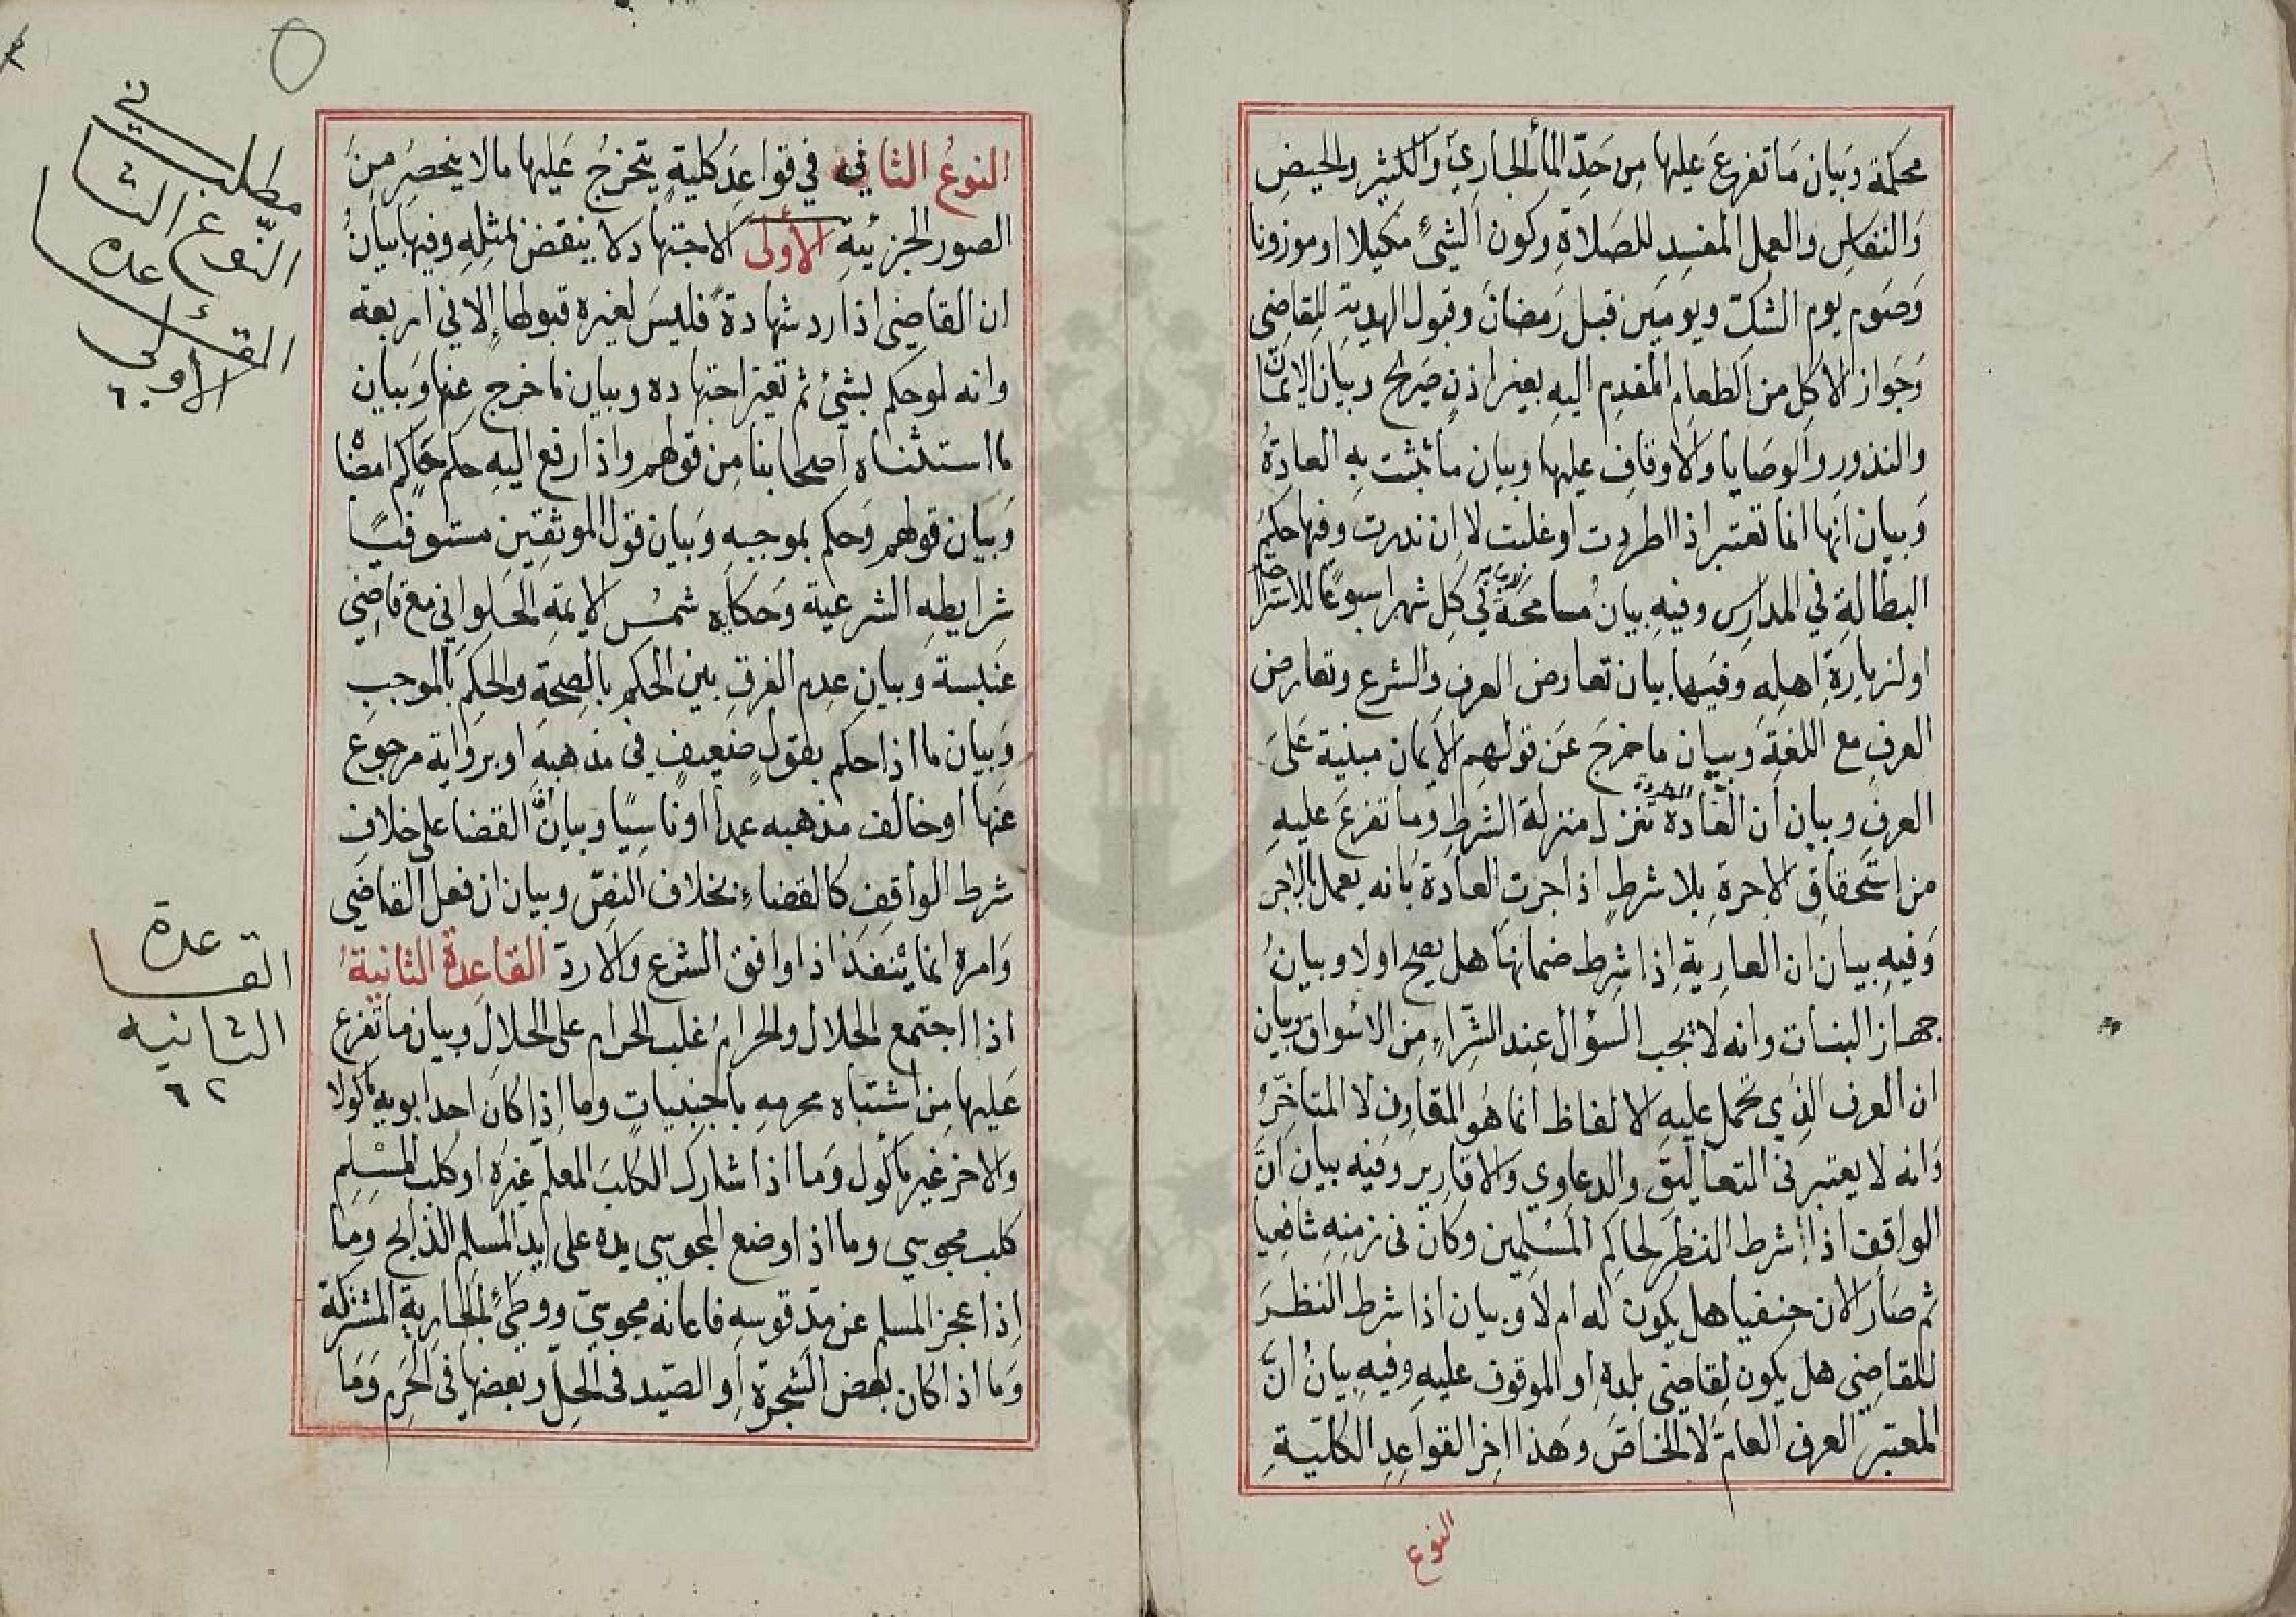 محكمة وبيان ما تفرع عليها من حد الماء الجاري والكثير والحيض
والنفاس والعمل المفسد للصلاة وكون الشئ مكيلا او موزونا
وصوم يوم الشك ويومين قبل رمضان وقبول الهدية للقاضى
وجواز الاكل من الطعام المقدم اليه بغير اذن صريح وبيان الايمان
والنذور والوصايا والاوقاف عليها وبيان ما تثبت به العادة
وبيان انها انما تعتبر اذا اطردت او غلبت لا ان ندرت وفيها حكم
البطالة في المدارس وفيه بيان مسامحة في كل شهر اسبوعا للاستراحة
او لزيارة اهله وفيها بيان تعارض العرف والشرع وتعارض
العرف مع اللغة وبيان ما خرج عن قولهم الايمان مبنية على
العرف وبيان ان العادة المطردة تنزل منزلة الشرط وما تفرع عليه
من استحقاق الاجرة بلا شرط اذا جرت العادة بانه يعمل بالاجر
وفيه بيان ان العارية اذا شرط ضمانها هل يصح اولا وبيان
جهاز البنات وانه لا تجب السؤال عند الشراء من الاسواق وبيان
ان العرف الذي تحمل عليه الالفاظ انما هو المقارن لا المتاخر
وانه لا يعتبر في التعاليق والدعاوي والاقارير وفيه بيان ان
الواقف اذا شرط النظر لحاكم المسلمين وكان في زمنه شافعيا
ثم صار الان حنفيا هل يكون له ام لا وبيان اذا شرط النظر
للقاضي هل يكون لقاضي بلده او الموقوف عليه وفيه بيان ان
المعتبر العرف العام لا الخاص وهذا اخر القواعد الكلية
النوع
النوع الثاني في قواعد كلية يتخرج عليها مالا ينحصر من
الصور الجزئية الأولى الاجتهاد لا ينقض بمثله وفيها بيان
ان القاضي اذا رد شهادة فليس لغيره قبولها إلا في اربعة
وانه لو حكم بشئ ثم تغير اجتهاده وبيان ما خرج عنها وبيان
ما استثناه اصحابنا من قولهم واذا رفع اليه حكم حاكم امضاه
وبيان قولهم وحكم بموجبه وبيان قول الموثقين مستوفيا
شرايطه الشرعية وحكاية شمس الايمة الحلواني مع قاضي
عنبسة وبيان عدم الفرق بين الحكم بالصحة والحكم بالموجب
وبيان ما اذا حكم بقول ضعيف في مذهبه او برواية مرجوع
عنها أو خالف مذهبه عمدا او ناسيا وبيان أن القضا على خلاف
شرط الواقف كالقضاء بخلاف النص وبيان ان فعل القاضي
وامره انما ينفذ اذا وافق الشرع والا رد القاعدة الثانية
اذا اجتمع الحلال والحرام غلب الحرام على الحلال وبيان ما تفرع
عليها من اشتباه محرمه باجنبيات وما اذا كان احد ابويه ماكولا
والاخر غير ماكول وما اذا شارك الكلب المعلم غيره او كلب المسلم
كلب مجوسي وما اذا وضع المجوسي يده على يد المسلم الذابح وما
اذا عجز المسلم عن مد قوسه فاعانه مجوسي ووطئ الجارية المشتركة
وما اذا كان بعض الشجرة أو الصيد في الحل وبعضها في الحرم وما
مطلب في
النوع الثا
القاعده
الأولى
٦٠
القاعدة
الثانيه
٦٢